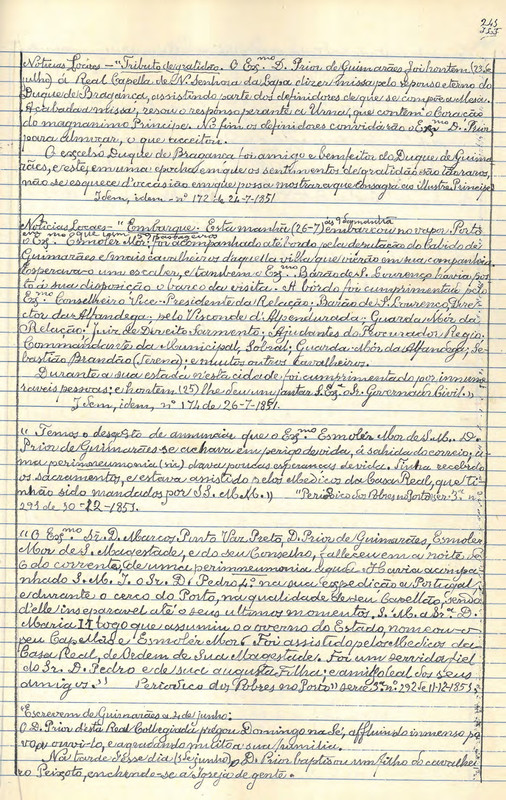 245
Noticias Locaes - "Tributo de gratidão. O Exmo D. Prior de Guimarães foi hontem (23 de
julho) á Real Capella de N. Senhora da Lapa dizer missa pelo repouso eterno do
Duque de Bragança, assistindo parte dos definidores de que se compõe a Mesa.
Acabada a missa, resou o responso perante a Urna, que contem o Coração
do magnanimo Principe. No fim os definidores convidarão o Exmo D. Prior
para almoçar, o que acceitou.
O excelso Duque de Bragança foi amigo e bemfeitor do Duque de Guima-
rães, e este, em uma epocha em que os sentimentos de gratidão são tão raros,
não se esquece d'occasião em que possa mostrar a que consagra ao illustre Principe
Idem, idem - nº 172 de 24-7-1851.
Noticias Locaes - "Embarque. Esta manhã (26-7) ás 9 da manhã embarcou no vapor Porto
o Exmo Esmoler Mór; foi acompanhado até bordo pela deputação do Cabido de
Guimarães e mais cavalheiros daquella villa que vierão em sua companhia
Esperava-o um escaler, e tambem o Exmo Barão de S. Lourenço havia pos-
to á sua disposição o barco da visita. A bordo foi cumprimentado pelo
Exmo Conselheiro Vice-Presidente da Relação; Barão de S. Lourenço, Dire-
ctor da Alfandega; pelo Visconde d'Alpendurada; Guarda Mór da
Relação; Juiz de Direito Sarmento; Ajudantes do Procurador Regio;
Commandante da Municipal, Sobral; Guarda Mór da Alfandega; Se-
bastião Brandão (Terena); e muitos outros Cavalheiros.
Durante a sua estada n'esta cidade foi cumprimentado por innume-
raveis pessoas; e hontem (25) lhe deu um jantar S. Exa o Sr. Governador Civil."
Idem, idem, nº 174 de 26-7-1851.
"Temos o desgosto de annunciar que o Exmo Esmoler Mor de S. M. D.
Prior de Guimarães se achava em perigo de vida, á sahida do correio, u-
ma perimneumonia (sic) dava poucas esperanças de vida. Tinha recebido
os sacramentos, e estava assistido pelos Medicos da Casa Real, que ti-
nhão sido mandados por SS. M. M." "Periodico dos Pobres no Porto" ser. 3ª nº
291 de 10-12-1851.
"O Exmo Sr. D. Marcos Pinto Vaz Preto, D. Prior de Guimarães, Esmoler
Mor de S. Magestade, e do seu Conselho, falleceu em a noite de
6 do corrente, de uma perimneumonia aguda. Havia acompa-
nhado S. M. I. o Sr. D. Pedro 4º na sua expedição a Portugal
e durante o cerco do Porto, na qualidade de seu Capellão, sendo
d'elle inseparavel até o seus ultimos momentos. S. M. a Srª D.
Maria II logo que assumiu o governo do Estado, nomeou-o
seu Capellão e Esmoler Mór. Foi assistido pelos Medicos da
Casa Real, de Ordem de Sua Magestade. Foi um servidor fiel
do Sr. D. Pedro e de sua augusta Filha; e amigo leal dos seus
amigos." Periodico dos Pobres no Porto" serie 3ª nº 292 de 11-12-1851.
"Escrevem de Guimarães a 4 de junho:
O D. Prior d'esta Real Collegiada prégou Domingo na Sé, affluindo immenso po-
vo a ouvi-lo, e agradando muito a sua homilia.
Na tarde d'esse dia (1 de junho) o D. Prior baptisou um filho do cavalhei-
ro Peixoto, enchendo-se a Igreja de gente.